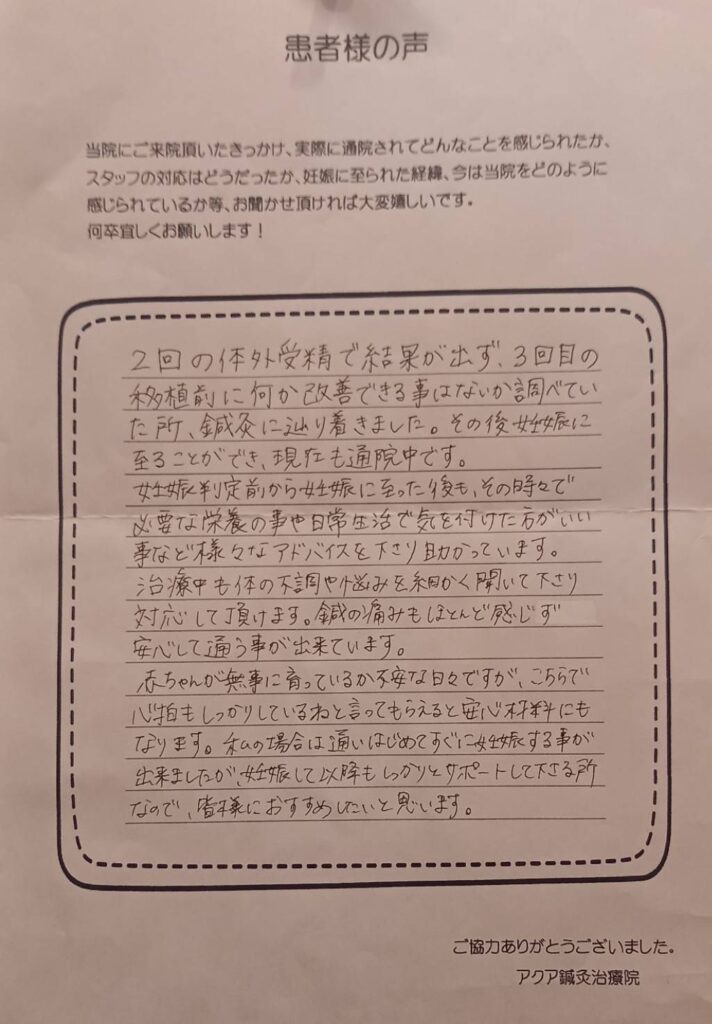 患者様の声
当院にご来院頂いたきっかけ、実際に通院されてどんなことを感じられたか、
スタッフの対応はどうだったか、妊娠に至られた経緯、今は当院をどのように
感じられているか等、お聞かせ頂ければ大変嬉しいです。
何卒宜しくお願いします！
2回の体外受精で結果が出ず、3回目の
移植前に何か改善できる事はないか調べてい
た所、鍼灸に辿り着きました。その後妊娠に
至ることができ、現在も通院中です。
妊娠判定前から妊娠に至った後も、その時々で
必要な栄養の事や日常生活で気を付けた方がいい
事など様々なアドバイスを下さり助かっています。
治療中も体の不調や悩みを細かく聞いて下さり
対応して頂けます。鍼の痛みもほとんど感じず
安心して通う事が出来ています。
赤ちゃんが無事に育っているか不安な日々ですが、こちらで
心拍もしっかりしているねと言ってもらえると安心材料にも
なります。私の場合は通いはじめてすぐに妊娠する事が
出来ましたが、妊娠して以降もしっかりとサポートして下さる所
なので、皆様におすすめしたいと思います。
ご協力ありがとうございました。
アクア鍼灸治療院